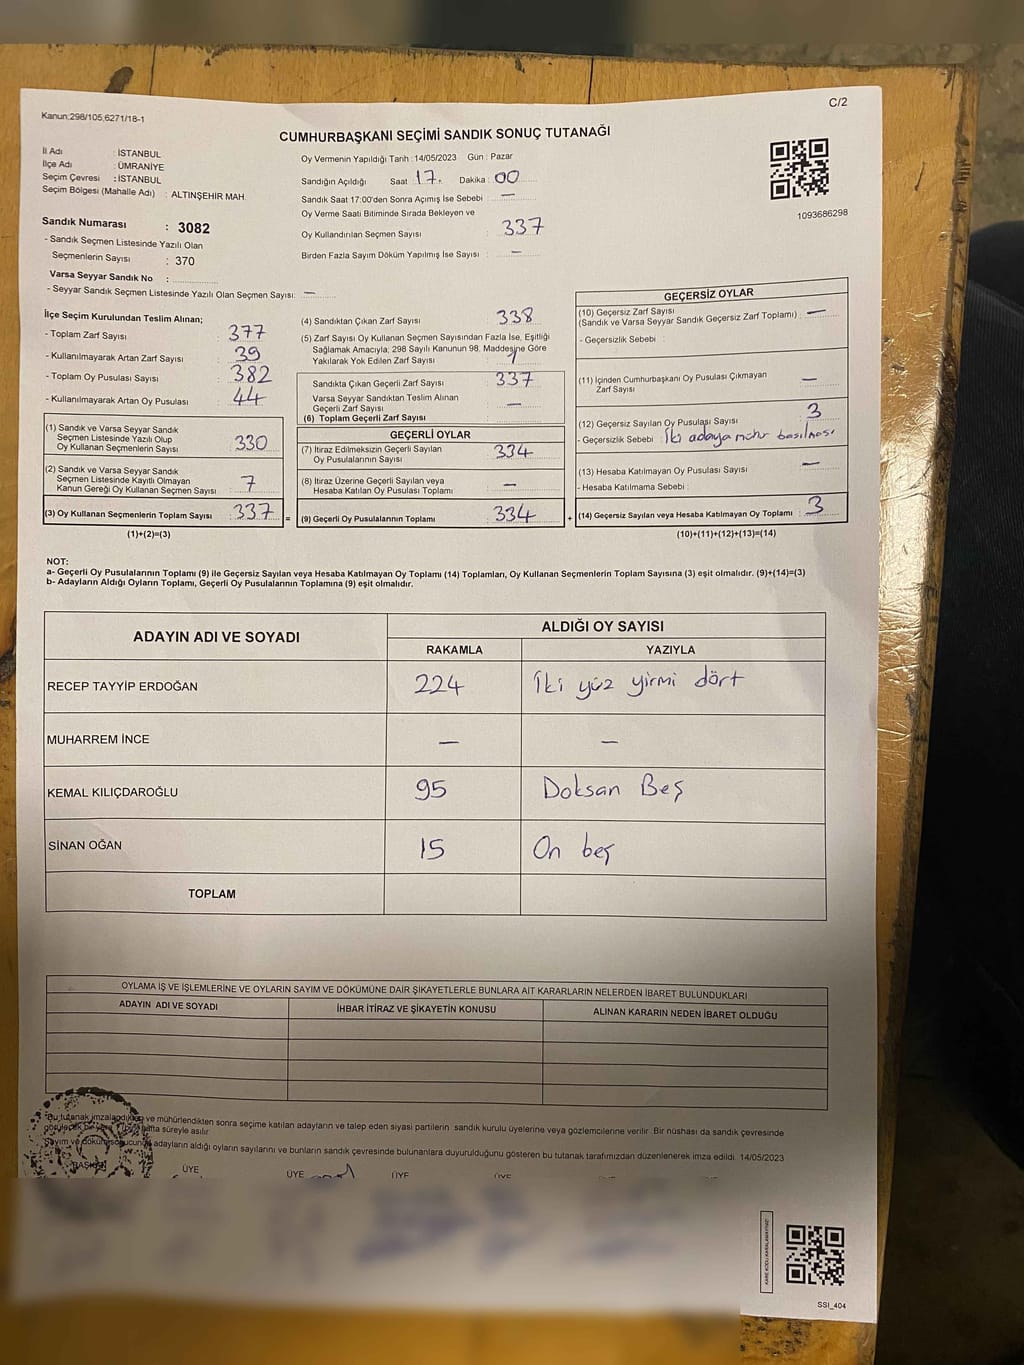 C/2
Kanun:298/105,6271/18-1
CUMHURBAŞKANI SEÇİMİ SANDIK SONUÇ TUTANAĞI
İl Adı : İSTANBUL
İlçe Adı : ÜMRANİYE
Seçim Çevresi : İSTANBUL
Seçim Bölgesi (Mahalle Adı) : ALTINŞEHİR MAH.
Oy Vermenin Yapıldığı Tarih :14/05/2023 Gün : Pazar
Sandığın Açıldığı Saat 17. Dakika : 00
Sandık Saat 17:00'den Sonra Açımış İse Sebebi : —
Oy Verme Saati Bitiminde Sırada Bekleyen ve
Oy Kullandırılan Seçmen Sayısı : 337
Birden Fazla Sayım Döküm Yapılmış İse Sayısı : —
1093686298
Sandık Numarası : 3082
- Sandık Seçmen Listesinde Yazılı Olan
Seçmenlerin Sayısı : 370
Varsa Seyyar Sandık No :
- Seyyar Sandık Seçmen Listesinde Yazılı Olan Seçmen Sayısı: —
İlçe Seçim Kurulundan Teslim Alınan;
- Toplam Zarf Sayısı : 377
- Kullanılmayarak Artan Zarf Sayısı : 39
- Toplam Oy Pusulası Sayısı : 382
- Kullanılmayarak Artan Oy Pusulası : 44
(1) Sandık ve Varsa Seyyar Sandık
Seçmen Listesinde Yazılı Olup
Oy Kullanan Seçmenlerin Sayısı : 330
(2) Sandık ve Varsa Seyyar Sandık
Seçmen Listesinde Kayıtlı Olmayan
Kanun Gereği Oy Kullanan Seçmen Sayısı : 7
(3) Oy Kullanan Seçmenlerin Toplam Sayısı : 337
(1)+(2)=(3)
(4) Sandıktan Çıkan Zarf Sayısı : 338
(5) Zarf Sayısı Oy Kullanan Seçmen Sayısından Fazla İse, Eşitliği
Sağlamak Amacıyla; 298 Sayılı Kanunun 98. Maddesine Göre
Yakılarak Yok Edilen Zarf Sayısı : 1
Sandıkta Çıkan Geçerli Zarf Sayısı : 337
Varsa Seyyar Sandıktan Teslim Alınan
Geçerli Zarf Sayısı : —
(6) Toplam Geçerli Zarf Sayısı :
GEÇERLİ OYLAR
(7) İtiraz Edilmeksizin Geçerli Sayılan
Oy Pusulalarının Sayısı : 334
(8) İtiraz Üzerine Geçerli Sayılan veya
Hesaba Katılan Oy Pusulası Toplamı : —
= (9) Geçerli Oy Pusulalarının Toplamı : 334 +
GEÇERSİZ OYLAR
(10) Geçersiz Zarf Sayısı
(Sandık ve Varsa Seyyar Sandık Geçersiz Zarf Toplamı) : —
- Geçersizlik Sebebi :
(11) İçinden Cumhurbaşkanı Oy Pusulası Çıkmayan
Zarf Sayısı : —
(12) Geçersiz Sayılan Oy Pusulası Sayısı : 3
- Geçersizlik Sebebi : İki adaya mühür basılması
(13) Hesaba Katılmayan Oy Pusulası Sayısı : —
- Hesaba Katılmama Sebebi :
(14) Geçersiz Sayılan veya Hesaba Katılmayan Oy Toplamı : 3
(10)+(11)+(12)+(13)=(14)
NOT:
a- Geçerli Oy Pusulalarının Toplamı (9) ile Geçersiz Sayılan veya Hesaba Katılmayan Oy Toplamı (14) Toplamları, Oy Kullanan Seçmenlerin Toplam Sayısına (3) eşit olmalıdır. (9)+(14)=(3)
b- Adayların Aldığı Oyların Toplamı, Geçerli Oy Pusulalarının Toplamına (9) eşit olmalıdır.
ADAYIN ADI VE SOYADI ALDIĞI OY SAYISI
RAKAMLA YAZIYLA
RECEP TAYYİP ERDOĞAN 224 İki yüz yirmi dört
MUHARREM İNCE — —
KEMAL KILIÇDAROĞLU 95 Doksan Beş
SİNAN OĞAN 15 On beş
TOPLAM
OYLAMA İŞ VE İŞLEMLERİNE VE OYLARIN SAYIM VE DÖKÜMÜNE DAİR ŞİKAYETLERLE BUNLARA AİT KARARLARIN NELERDEN İBARET BULUNDUKLARI
ADAYIN ADI VE SOYADI İHBAR İTİRAZ VE ŞİKAYETİN KONUSU ALINAN KARARIN NEDEN İBARET OLDUĞU
Bu tutanak imzalandıktan ve mühürlendikten sonra seçime katılan adayların ve talep eden siyasi partilerin sandık kurulu üyelerine veya gözlemcilerine verilir. Bir nüshası da sandık çevresinde
hafta süreyle asılır.
Sayım ve döküm sonucunda adayların aldığı oyların sayılarını ve bunların sandık çevresinde bulunanlara duyurulduğunu gösteren bu tutanak tarafımızdan düzenlenerek imza edildi. 14/05/2023
BAŞKAN ÜYE ÜYE ÜYE ÜYE
SSI_404